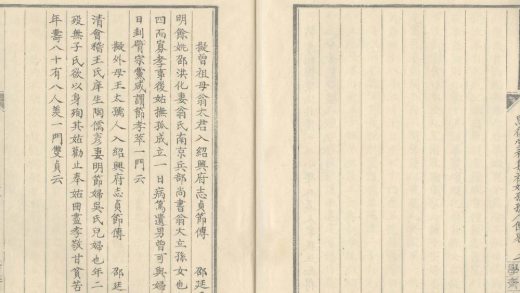 擬曾祖母翁太君入紹興府志貞節傳　邵廷
明餘姚邵洪化妻翁氏南京兵部尚書翁大立孫女也
四而寡孝事後姑撫孤成立一日病篤遺男曾可與婦
日刲臂宗黨咸謂節孝萃一門云
擬外母王太孺人入紹興府志貞節傳　邵廷
清會稽王氏庠生陶儒彥妻明節婦吳氏兒婦也年二
歿無子氏欲以身殉其姑勸止奉姑曲盡孝敬甘貧苦
年壽八十有八人羨一門雙貞云